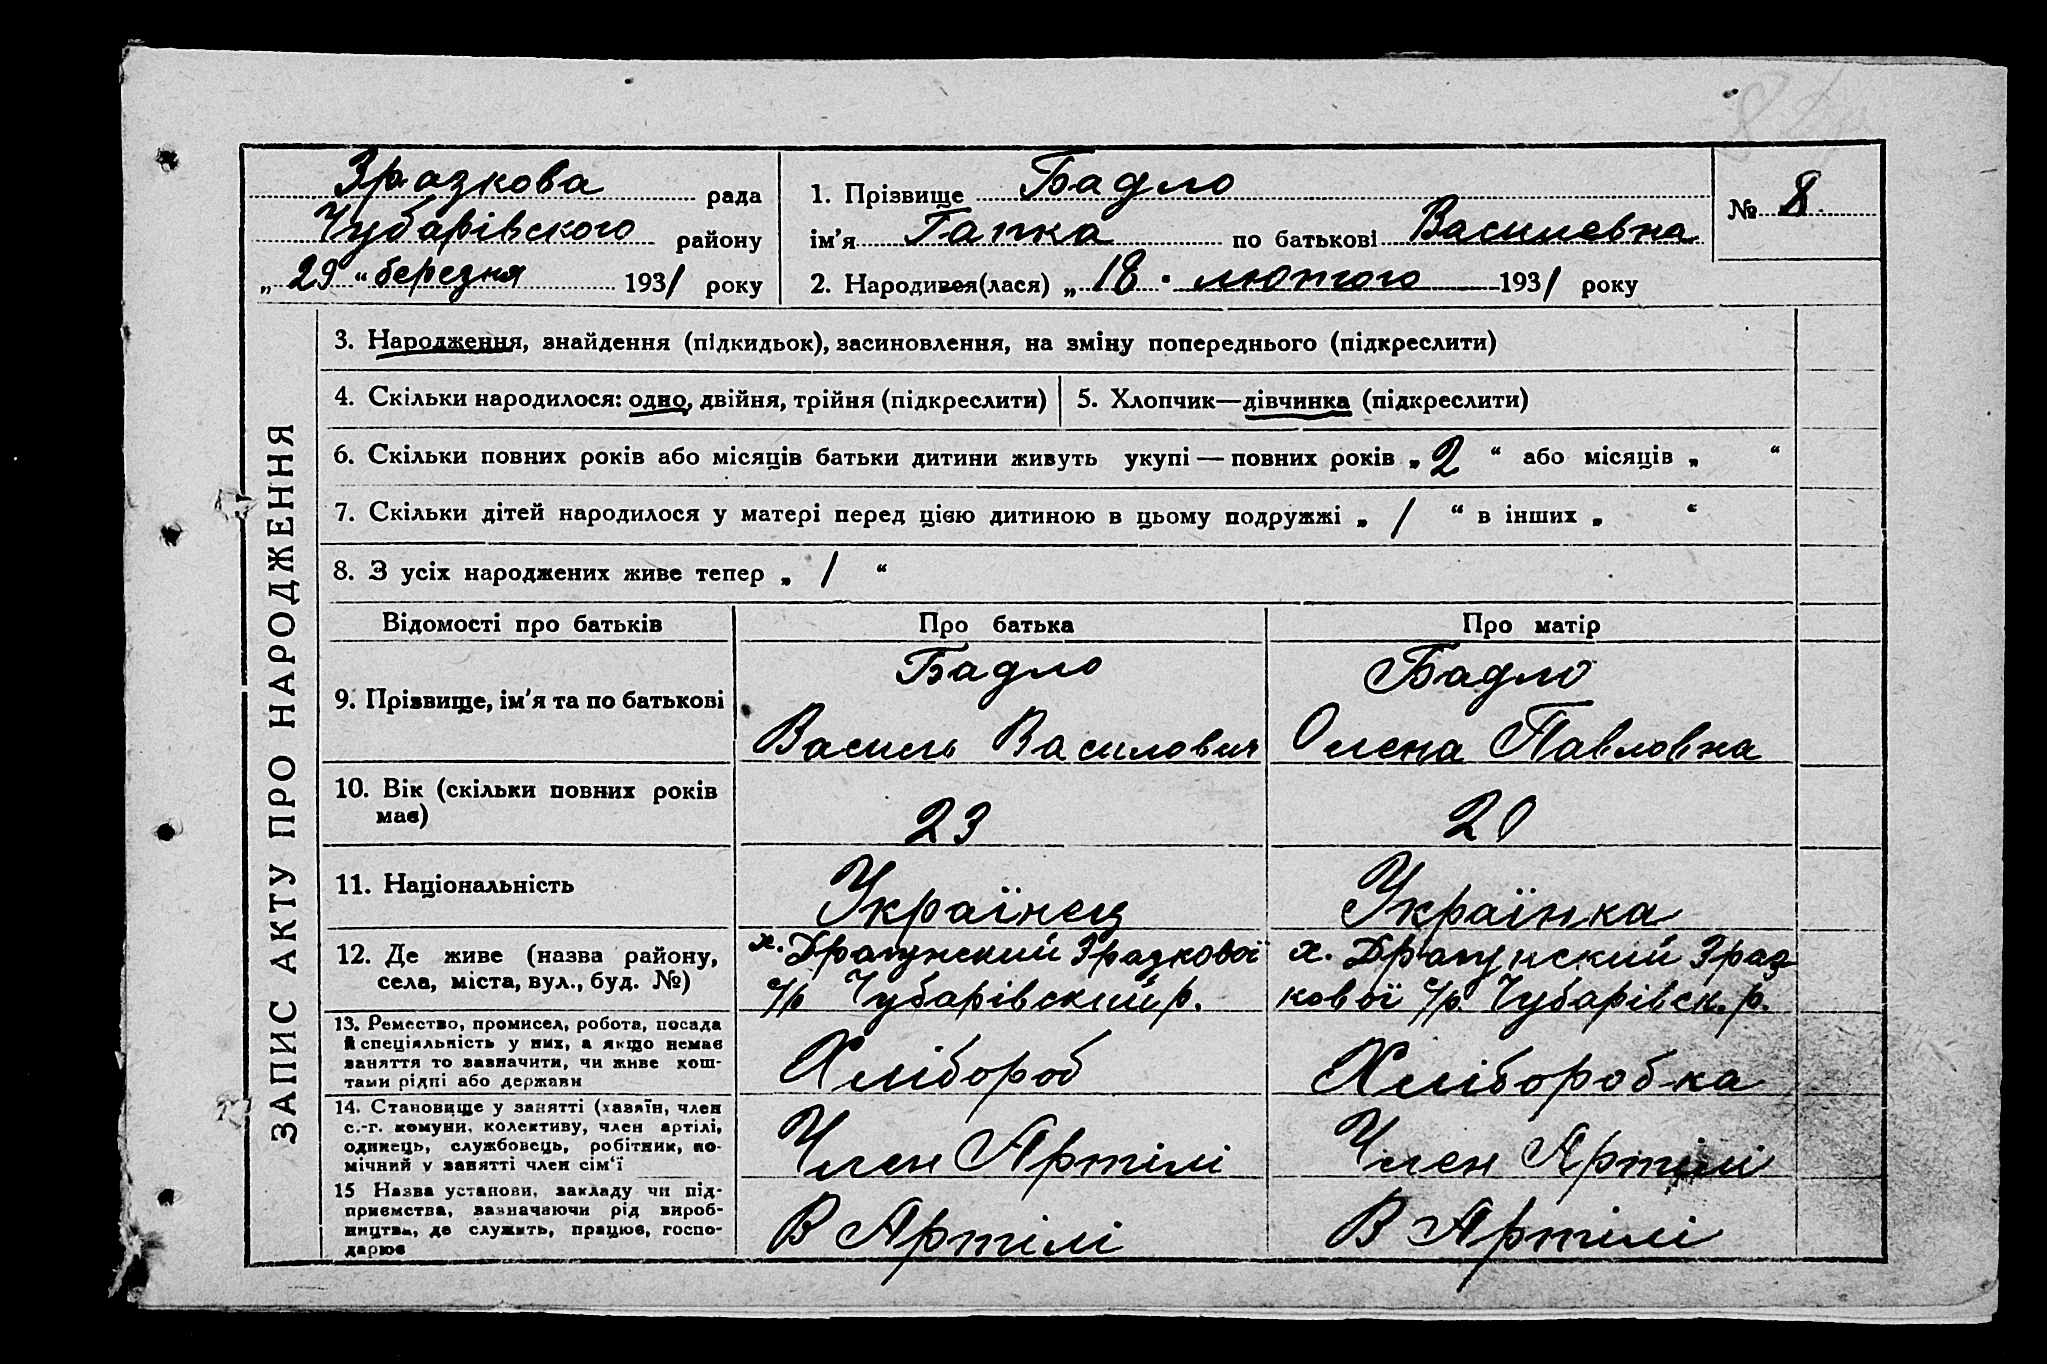 Зразкова рада
Чубарівського району
„29“ березня 1931 року
1. Прізвище Бадло
ім'я Гапка по батькові Василевна
2. Народився(лася) „18" лютого 1931 року
№ 8
ЗАПИС АКТУ ПРО НАРОДЖЕННЯ
3. Народження, знайдення (підкидьок), засиновлення, на зміну попереднього (підкреслити)
4. Скільки народилося: одно, двійня, трійня (підкреслити)
5. Хлопчик—дівчинка (підкреслити)
6. Скільки повних років або місяців батьки дитини живуть укупі — повних років „2“ або місяців „ “
7. Скільки дітей народилося у матері перед цією дитиною в цьому подружжі „1“ в інших „ “
8. З усіх народжених живе тепер „1“
Відомості про батьків
Про батька
Про матір
9. Прізвище, ім'я та по батькові
Бадло
Василь Василович
Бадло
Олена Павловна
10. Вік (скільки повних років
має)
23
20
11. Національність
Українец
Українка
12. Де живе (назва району,
села, міста, вул., буд. №)
х. Драгунский Зразкової
с/р Чубарівский р.
х. Драгунский Зраз
кової с/р. Чубарівск. р.
13. Ремество, промисел, робота, посада
й спеціяльність у них, а якщо немає
заняття то зазначити, чи живе кош-
тами рідні або держави
Хлібороб
Хліборобка
14. Становище у занятті (хазяїн, член
с.-г. комуни, колективу, член артілі,
одинець, службовець, робітник, по-
мічний у занятті член сім'ї
Член Артілі
Член Артілі
15 Назва установи, закладу чи під-
приємства, зазначаючи рід вироб-
ництва, де служить, працює, госпо-
дарює
В Артілі
В Артілі